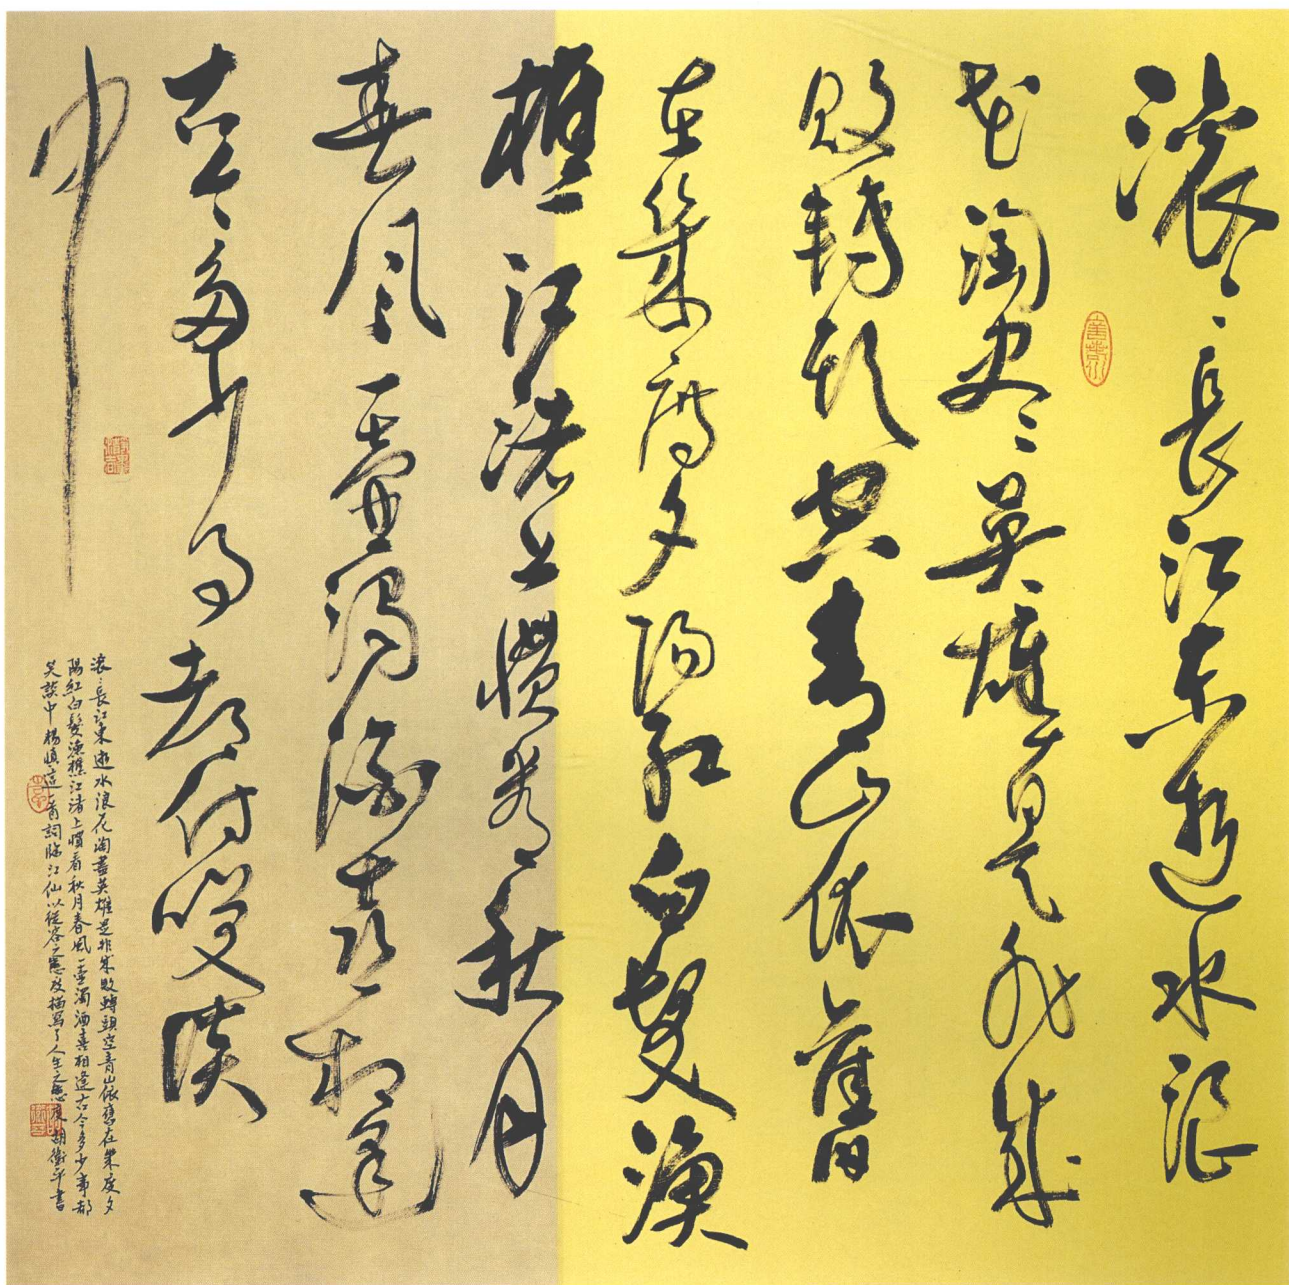 滚〻長江東逝水浪
花淘尽英雄是非成
敗轉頭空青山依舊
在幾度夕陽紅白髮漁
樵江渚上慣看秋月
春風一壺濁酒喜相逢
古今多少事都付笑談
中
滚〻長江東逝水浪花淘盡英雄是非成敗轉頭空青山依舊在幾度夕
陽紅白髮漁樵江渚上慣看秋月春風一壺濁酒喜相逢古今多少事都
笑談中楊慎這首詞臨江仙以從容之態度描寫了人生之態度胡衛平書